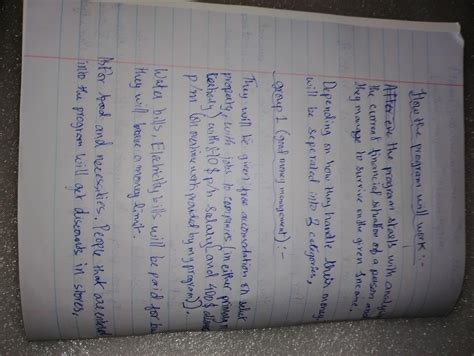 How the program will work :-
After eve the program starts with analy
the current financial situation of a person and
they manage to survive on the given income.
Depending on how they handle their money
will be seperated into 3 categories,
group 1 (good money management) :-
They will be given free accomodation on select
property, with jobs in companies in either primary
with $10 p/h salary and 400$
p/m (all overseen and provided by my program).
Water bills, Electricity bills will be paid for but
they will have a money limit.
For food and necessities. People that are entered
into the program will get discounts in stores,